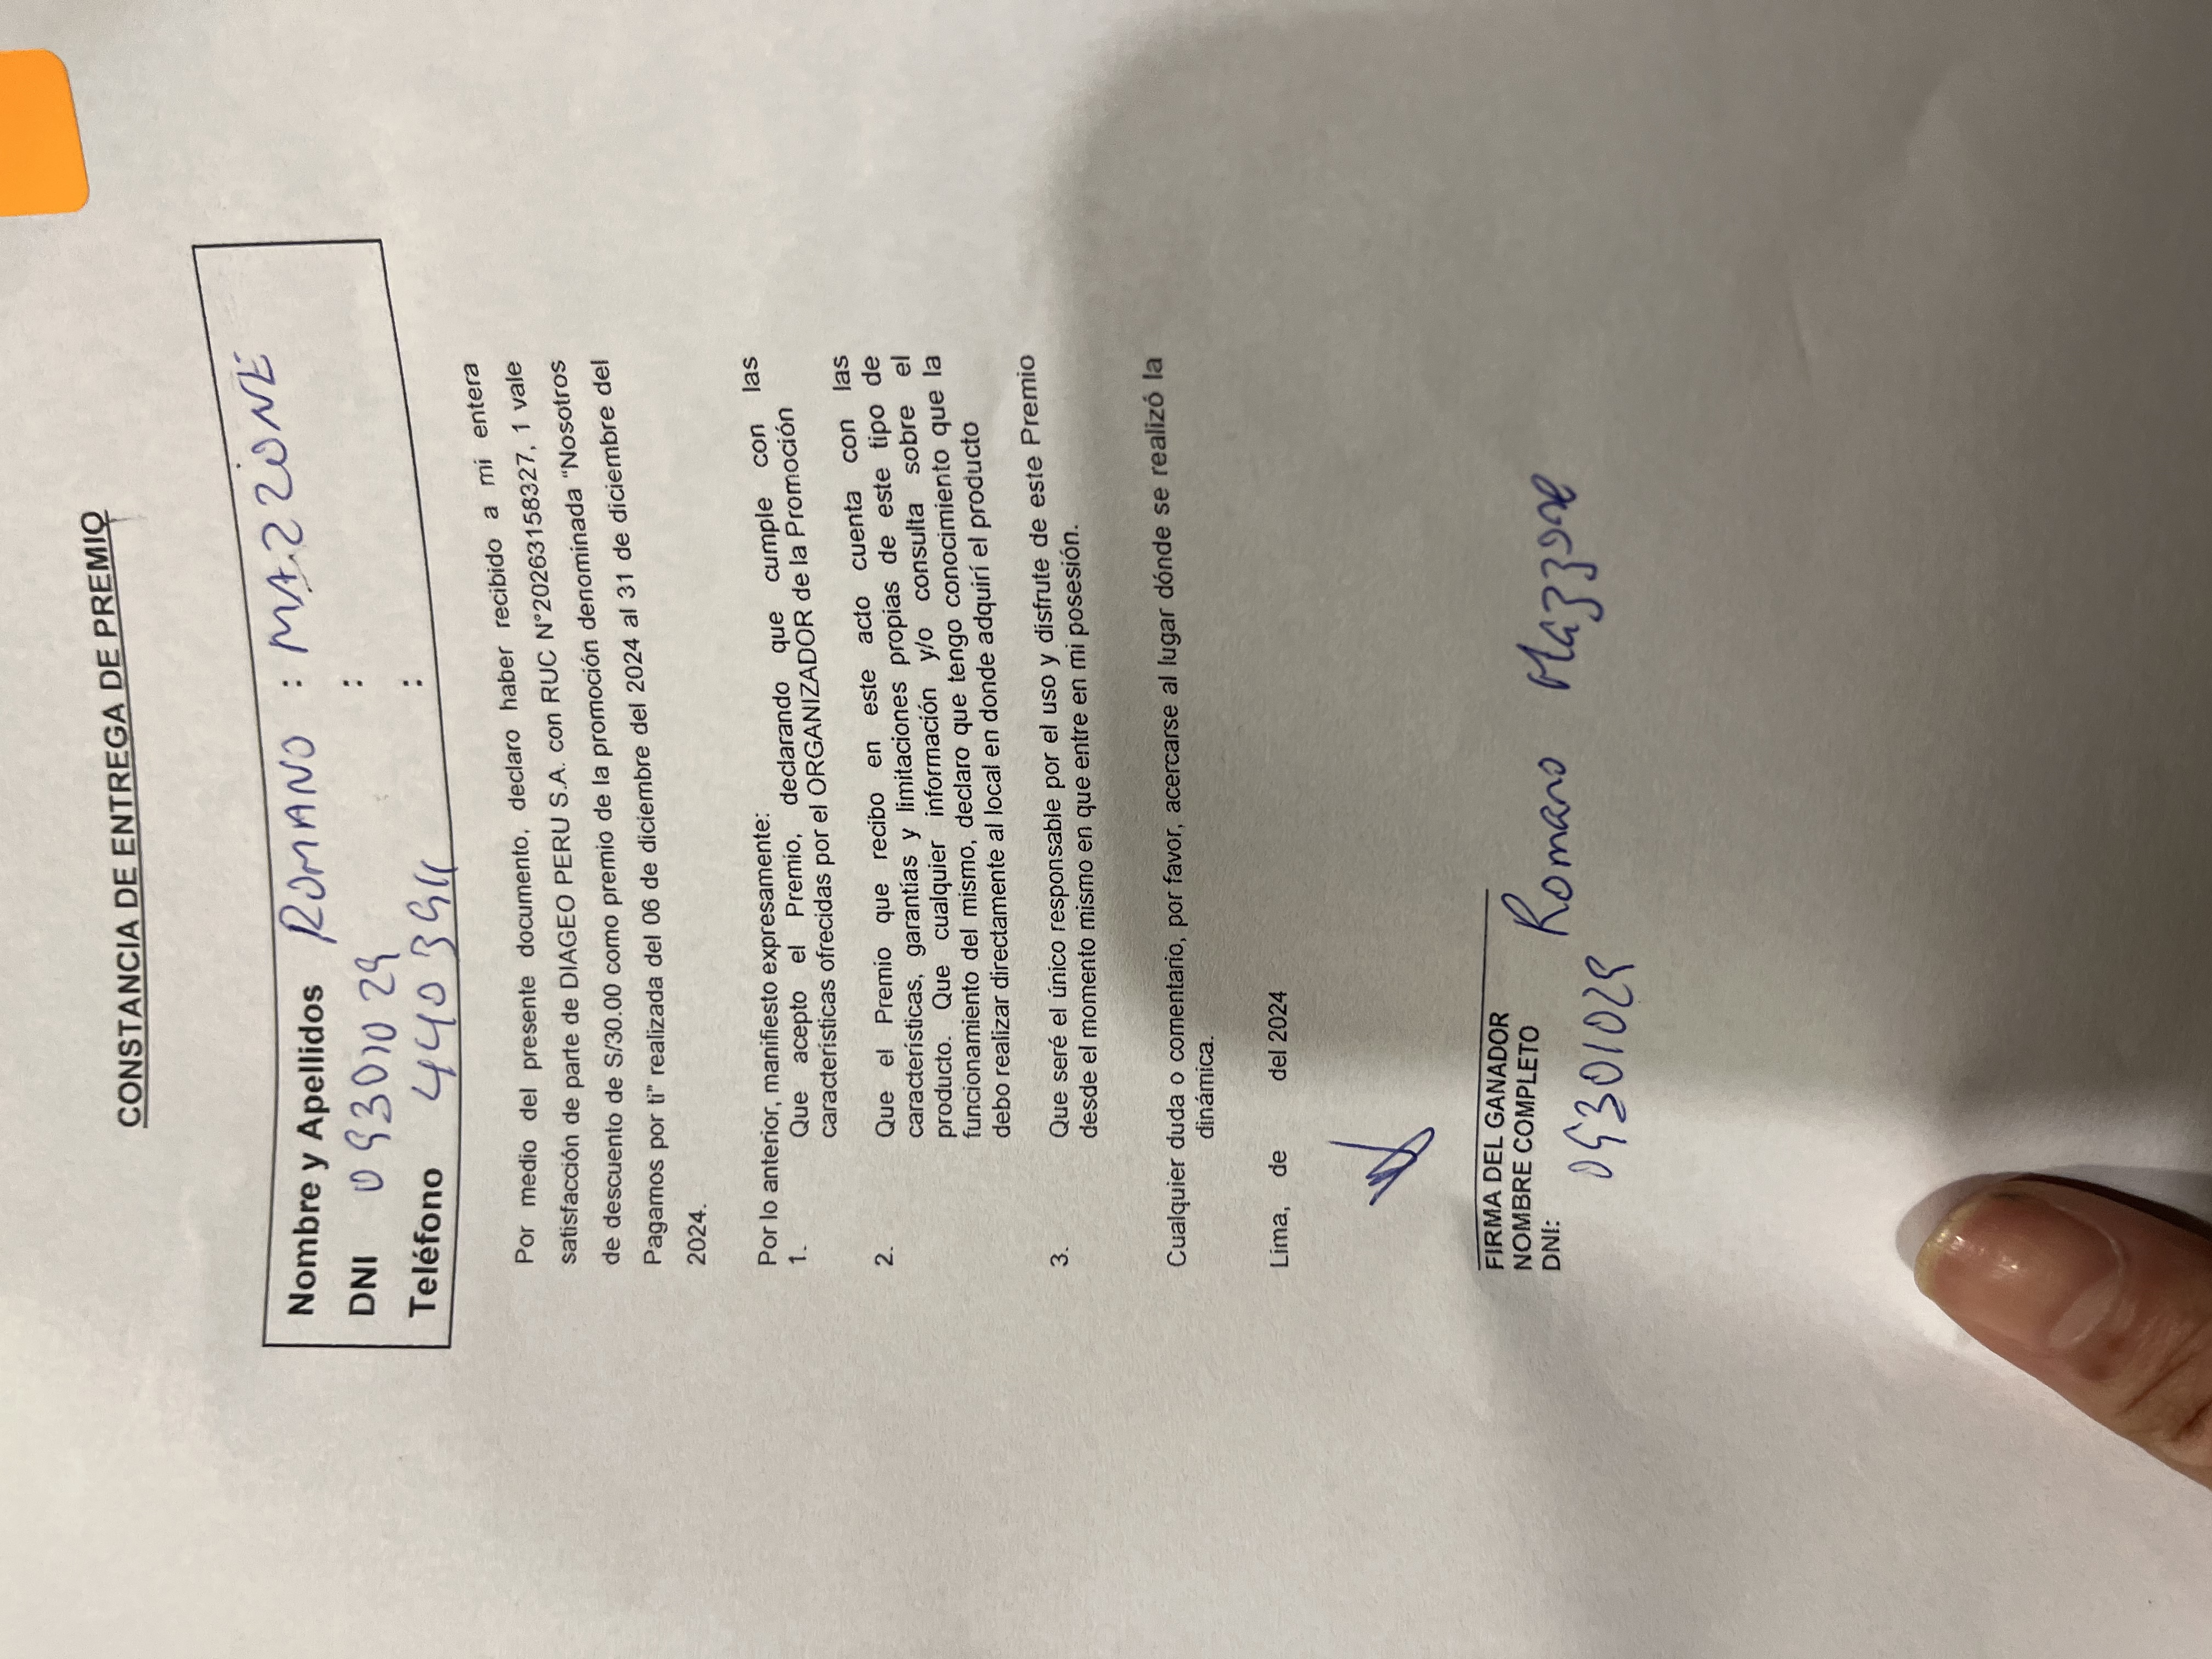 CONSTANCIA DE ENTREGA DE PREMIO
Nombre y Apellidos ROMANO : MAZZONE
DNI 09301029 :
Teléfono 4403911 :
Por medio del presente documento, declaro haber recibido a mi entera
satisfacción de parte de DIAGEO PERU S.A. con RUC N°20263158327, 1 vale
de descuento de S/30.00 como premio de la promoción denominada “Nosotros
Pagamos por ti” realizada del 06 de diciembre del 2024 al 31 de diciembre del
2024.
Por lo anterior, manifiesto expresamente:
1. Que acepto el Premio, declarando que cumple con las
características ofrecidas por el ORGANIZADOR de la Promoción
2. Que el Premio que recibo en este acto cuenta con las
características, garantías y limitaciones propias de este tipo de
producto. Que cualquier información y/o consulta sobre el
funcionamiento del mismo, declaro que tengo conocimiento que la
debo realizar directamente al local en donde adquirí el producto
3. Que seré el único responsable por el uso y disfrute de este Premio
desde el momento mismo en que entre en mi posesión.
Cualquier duda o comentario, por favor, acercarse al lugar dónde se realizó la
dinámica.
Lima, de del 2024
FIRMA DEL GANADOR
NOMBRE COMPLETO Romano Mazzone
DNI:
09301029